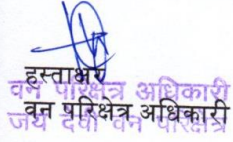 हस्ताक्षर
वन परिक्षेत्र अधिकारी
वन परिक्षेत्र अधिकारी
जय देवी वन परिक्षेत्र